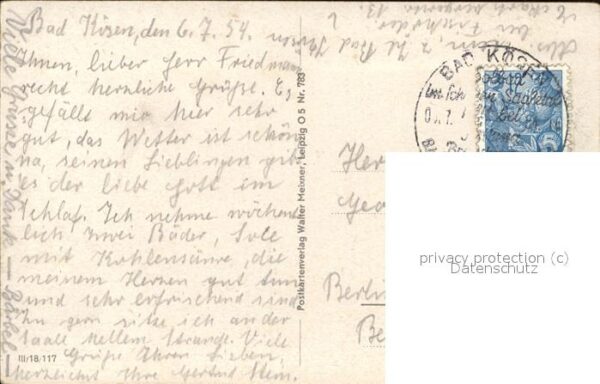 Bad Kösen, den 6.7.54.
Ihnen, lieber Herr Friedmann
recht herzliche Grüße. Es
gefällt mir hier sehr
gut, das Wetter ist schön
na, seinen Lieblingen gibt
es der liebe Gott im
Schlaf. Ich nehme wöchent-
lich zwei Bäder, Sole
mit Kohlensäure, die
meinem Herzen gut tun
und sehr erfrischend sind
Zu gern sitze ich an der
Saale hellem Strande. Viele
Grüße Ihren Lieben,
herzlichst Ihre Gertrud Stein.
Viele Grüsse u. Dank – Bärbel –
III/18/117
Postkartenverlag Walter Meixner, Leipzig O 5 Nr. 783
z. Zt. Bad Kösen
BAD KÖSEN
Im schönen Saaletal
Herr
Geo
Berlin
Be
privacy protection (c)
Datenschutz